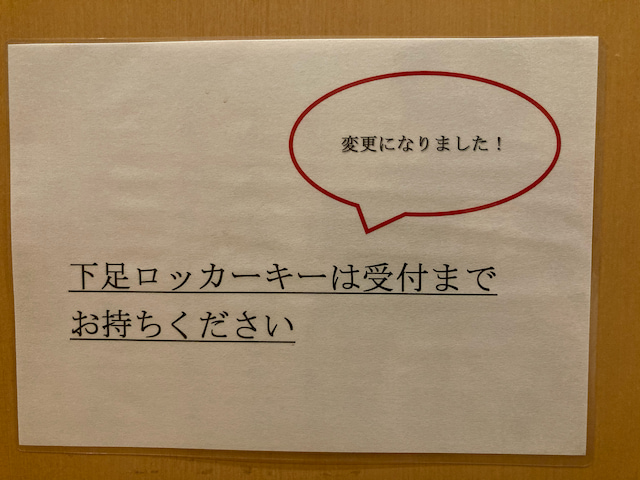 変更になりました！
下足ロッカーキーは受付まで
お持ちください